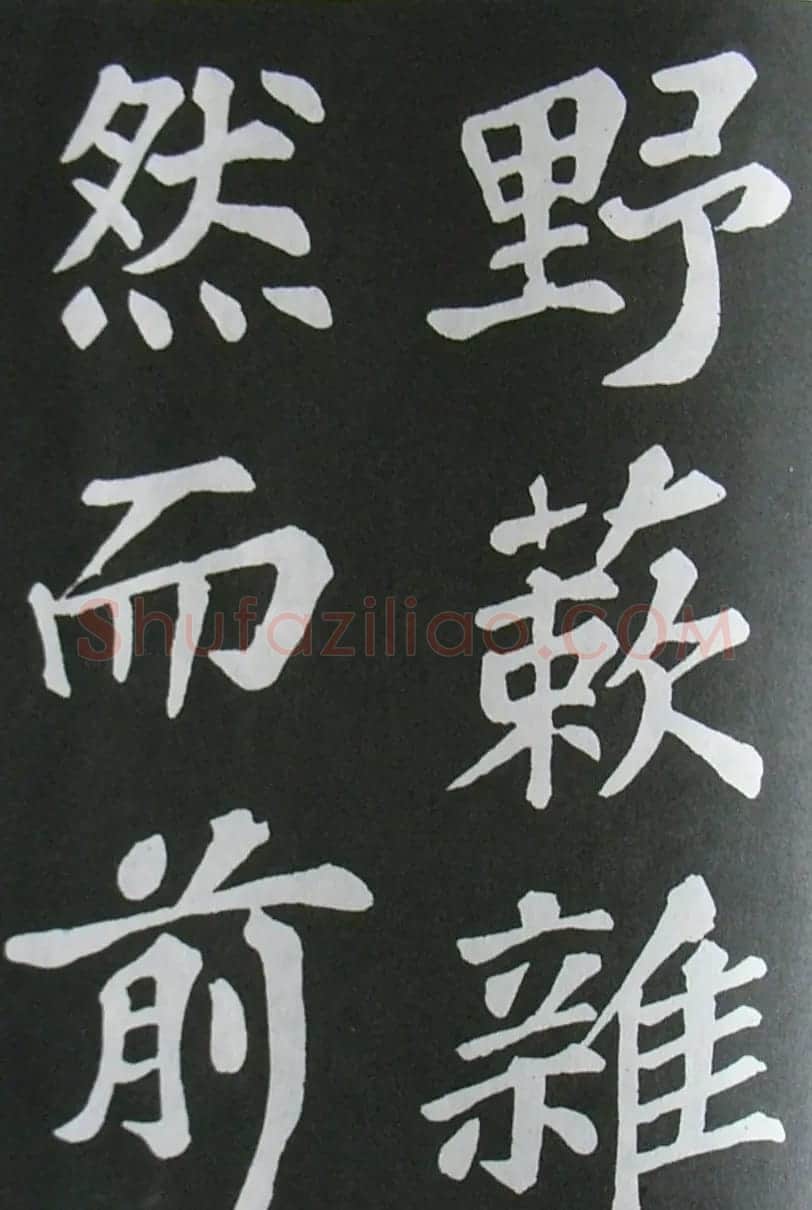 野蔌雜
然而前
Shufaziliao.COM